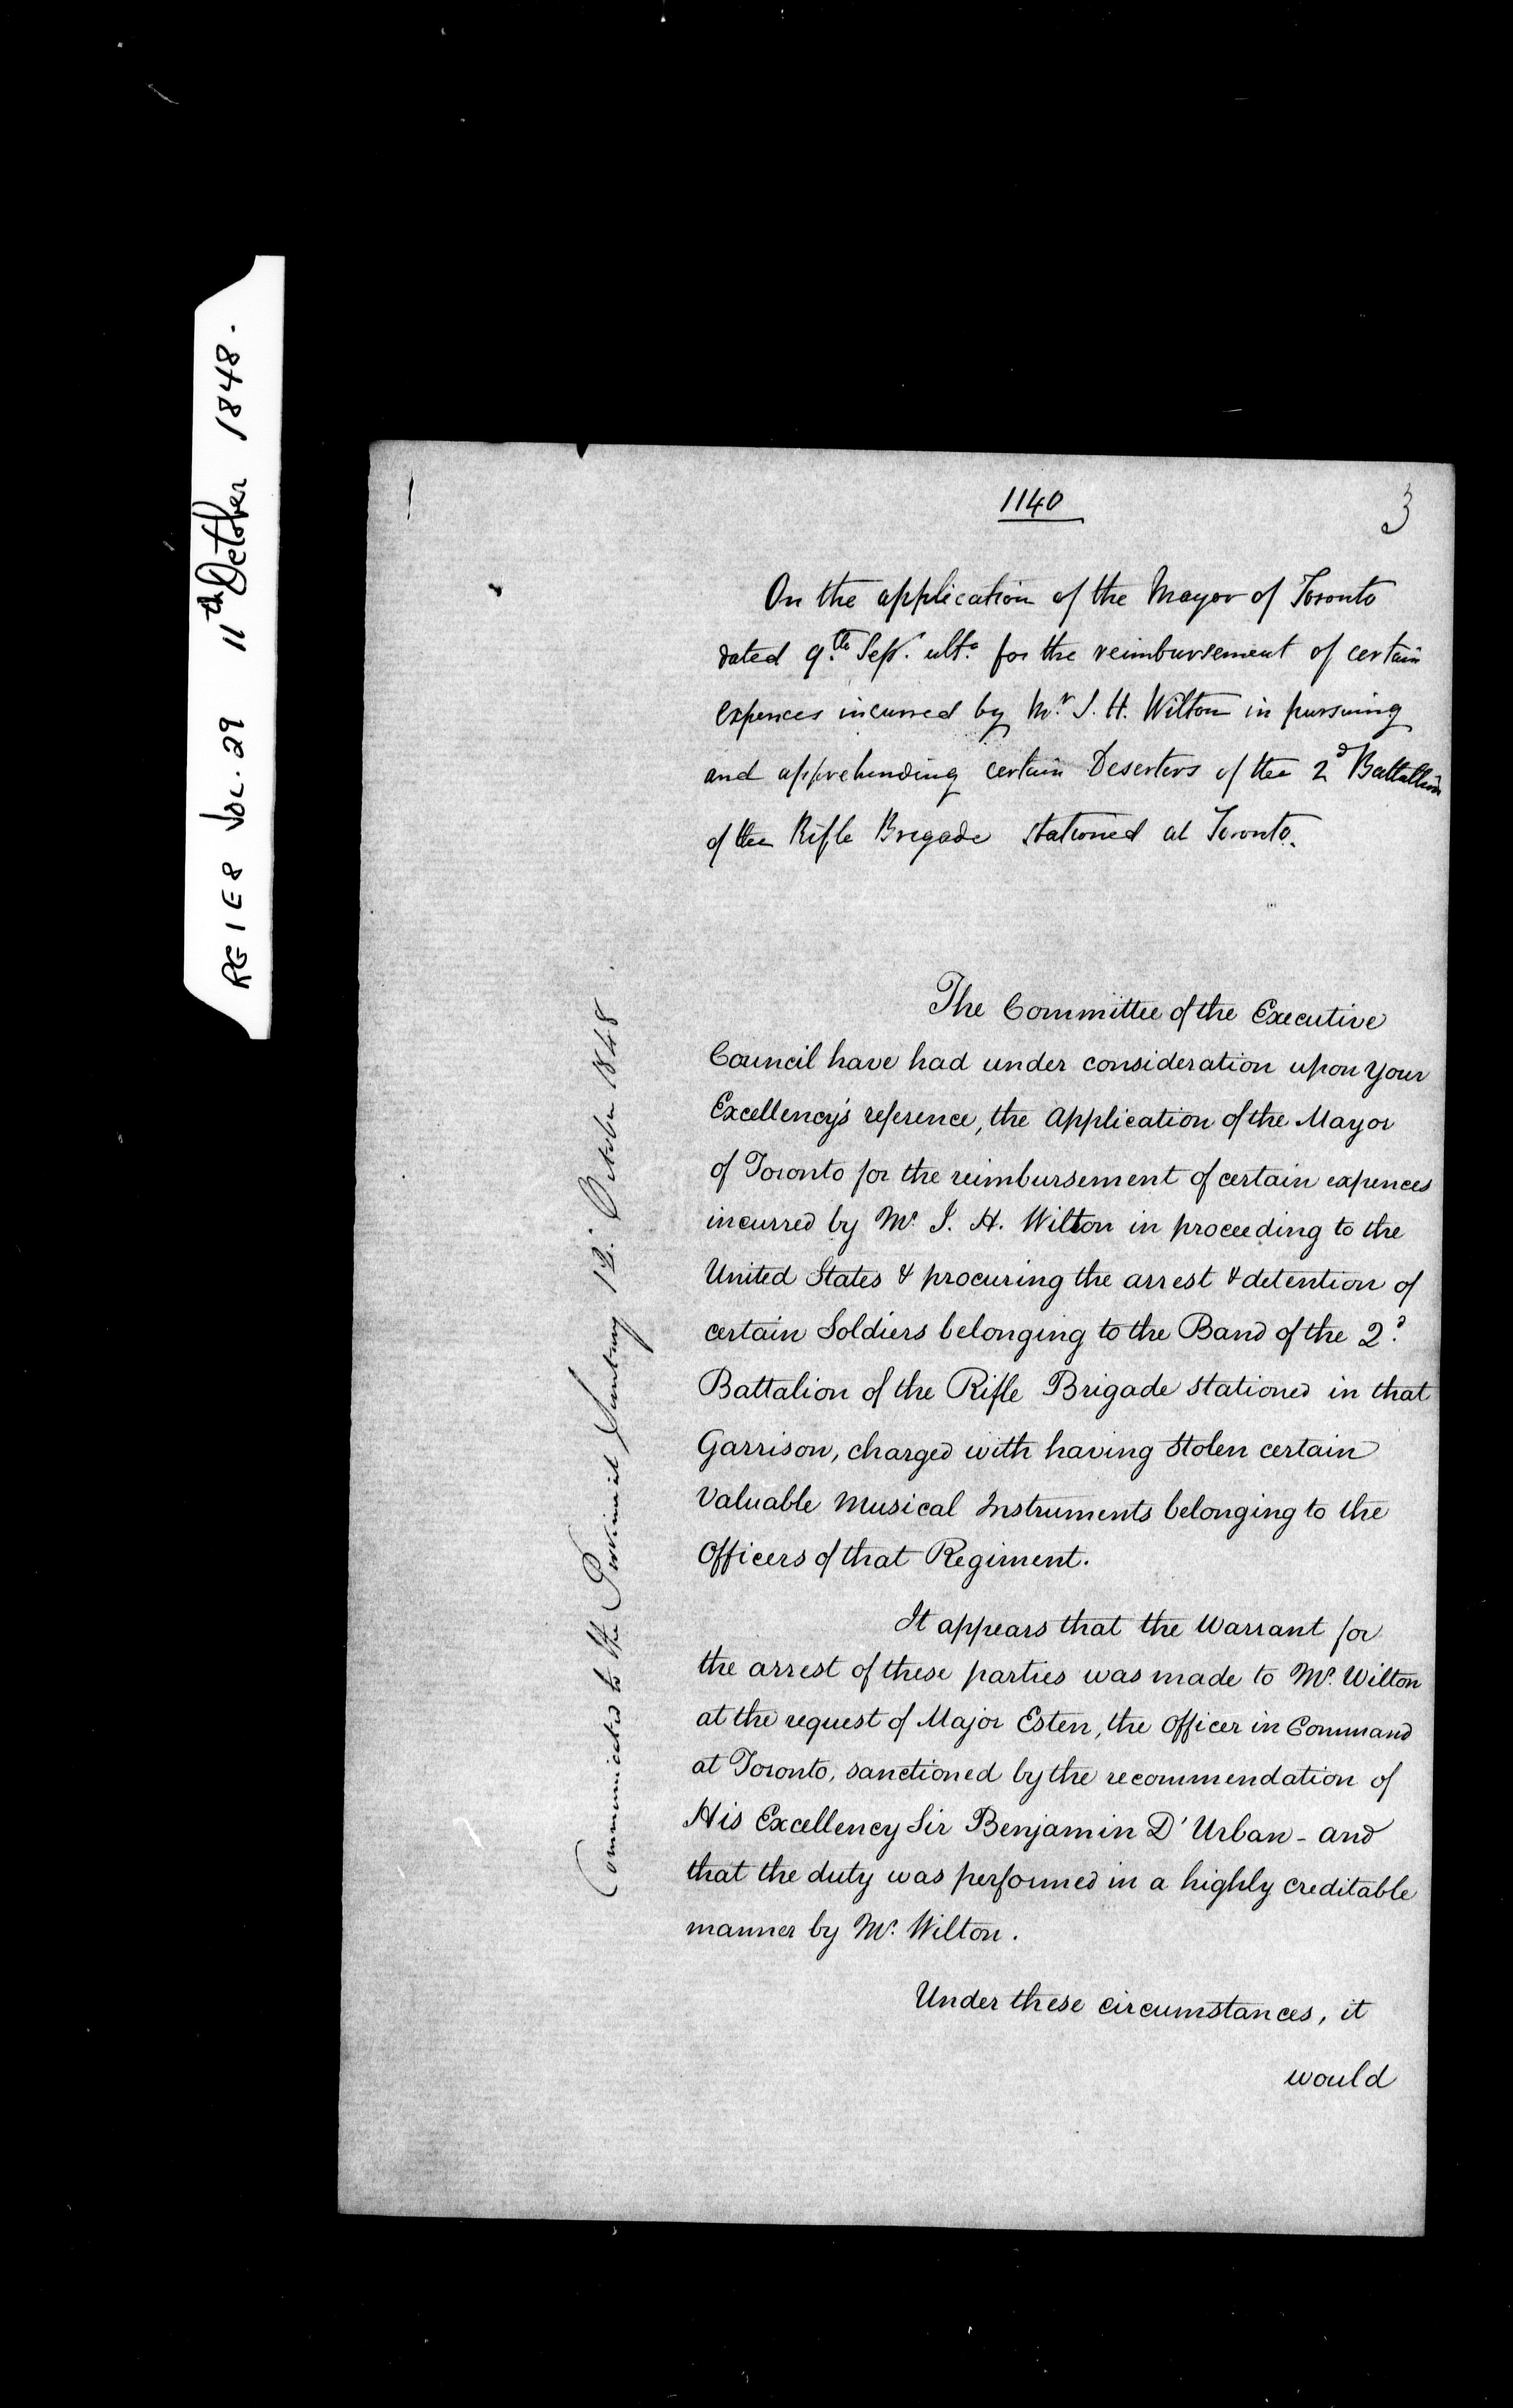 RG 1 E 8 VOL. 29 11th October 1848.
1140
3
On the application of the Mayor of Toronto
dated 9.th Sept. ulto. for the reimbursement of certain
expences incurred by Mr. J. H. Wilton in pursuing
and apprehending certain Deserters of the 2d Battallion
of the Rifle Brigade stationed at Toronto.
The Committee of the Executive
Council have had under consideration upon Your
Excellency's reference, the Application of the Mayor
of Toronto for the reimbursement of certain expences
incurred by Mr. J. H. Wilton in proceeding to the
United States & procuring the arrest & detention of
certain Soldiers belonging to the Band of the 2d.
Battalion of the Rifle Brigade stationed in that
Garrison, charged with having stolen certain
Valuable Musical Instruments belonging to the
Officers of that Regiment.
It appears that the Warrant for
the arrest of these parties was made to Mr. Wilton
at the request of Major Esten, the Officer in Command
at Toronto, sanctioned by the recommendation of
His Excellency Sir Benjamin D'Urban - and
that the duty was performed in a highly creditable
manner by Mr. Wilton.
Under these circumstances, it
would
Communicated to the Provincial Secretary 12. October 1848.